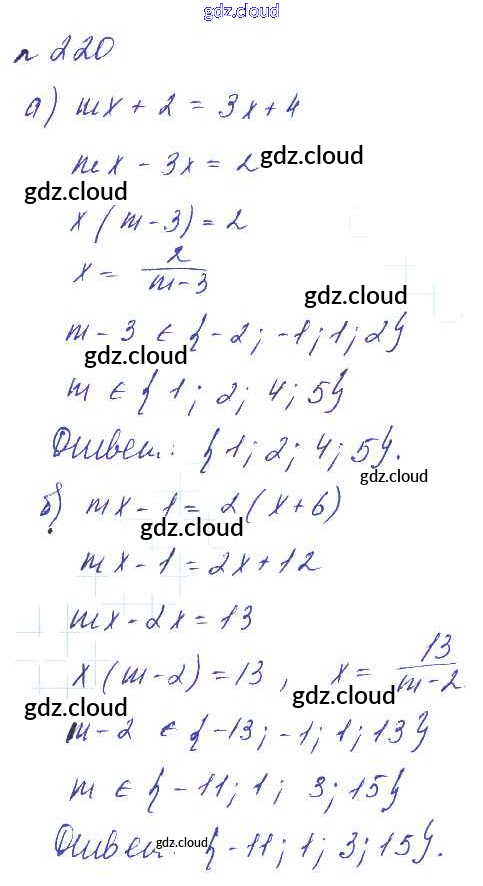 gdz.cloud
№ 220
а) mx + 2 = 3x + 4
mx - 3x = 2 gdz.cloud
gdz.cloud
x (m - 3) = 2
x = 2/(m - 3)
gdz.cloud
m - 3 ∈ {-2; -1; 1; 2}
gdz.cloud
m ∈ {1; 2; 4; 5}
Ответ: {1; 2; 4; 5}.
gdz.cloud
б) mx - 1 = 2(x + 6)
gdz.cloud
mx - 1 = 2x + 12
mx - 2x = 13
x (m - 2) = 13, x = 13/(m - 2)
gdz.cloud gdz.cloud
m - 2 ∈ {-13; -1; 1; 13}
m ∈ {-11; 1; 3; 15}
Ответ: gdz.cloud {-11; 1; 3; 15}.